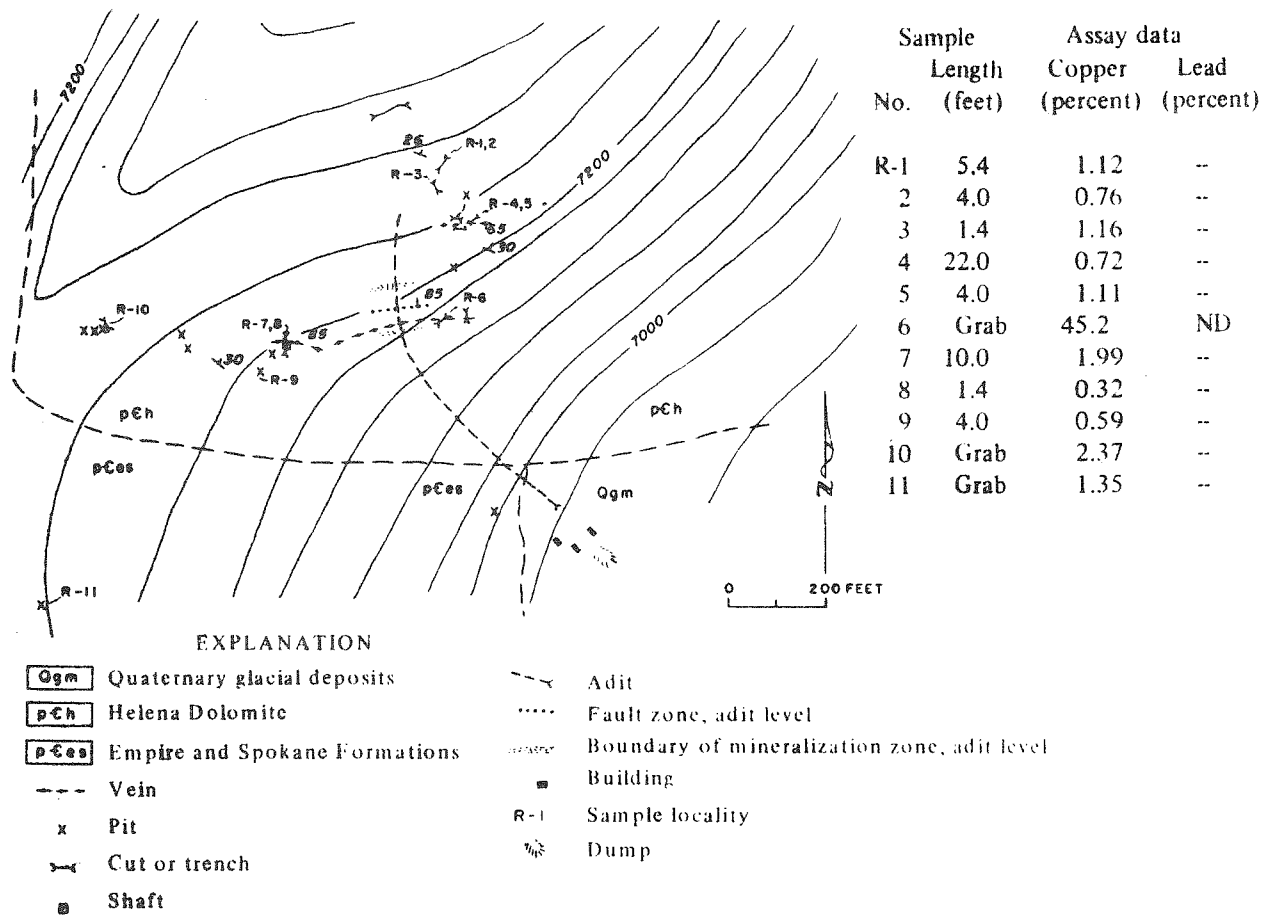 7200
26
R-1,2
R-3
7200
R-4,5
65
30
85
R-6
R-10
R-7,8
85
30
R-9
7000
p€h
p€h
p€es
p€es
Qgm
N
R-11
0 200 FEET
Sample Assay data
Length Copper Lead
No. (feet) (percent) (percent)
R-1 5.4 1.12 --
2 4.0 0.76 --
3 1.4 1.16 --
4 22.0 0.72 --
5 4.0 1.11 --
6 Grab 45.2 ND
7 10.0 1.99 --
8 1.4 0.32 --
9 4.0 0.59 --
10 Grab 2.37 --
11 Grab 1.35 --
EXPLANATION
Qgm Quaternary glacial deposits
p€h Helena Dolomite
p€es Empire and Spokane Formations
Vein
x Pit
Cut or trench
Shaft
Adit
Fault zone, adit level
Boundary of mineralization zone, adit level
Building
R-1 Sample locality
Dump